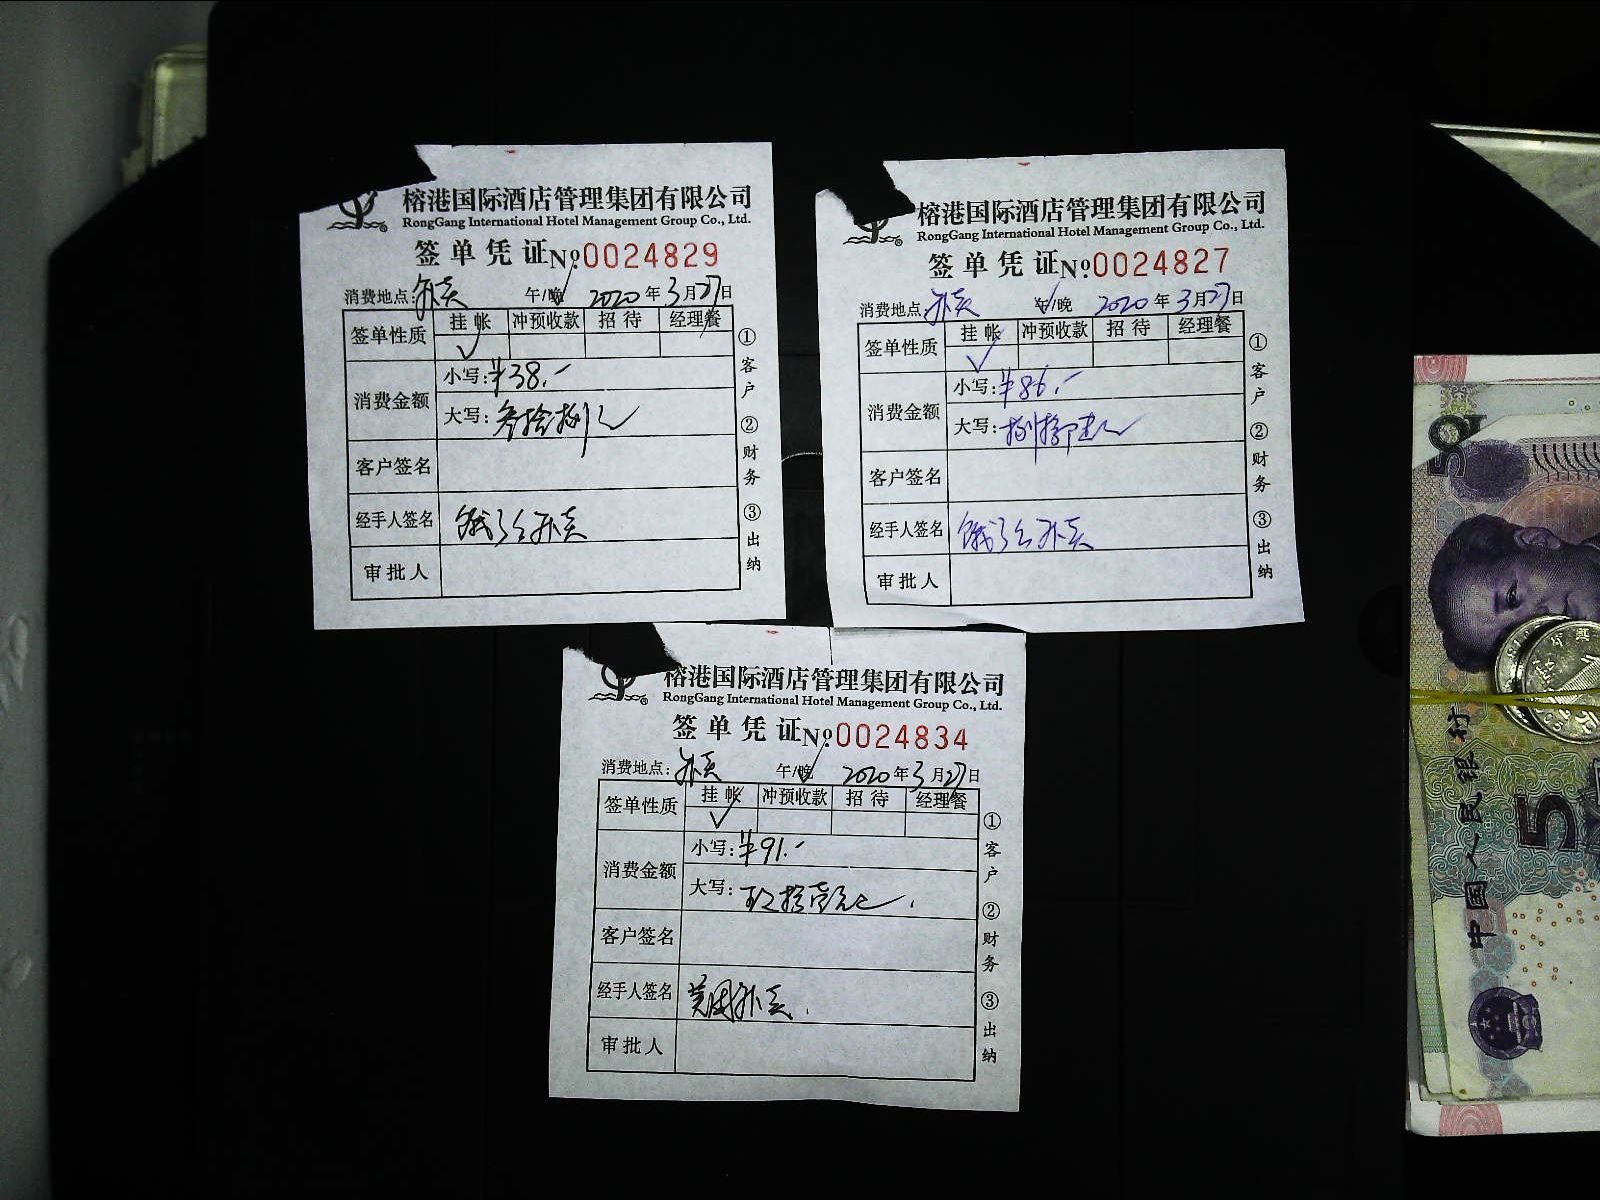 榕港国际酒店管理集团有限公司
RongGang International Hotel Management Group Co., Ltd.
签单凭证 №0024829
消费地点: 外卖 午/晚 2020年3月27日
签单性质 挂帐 冲预收款 招待 经理餐
✓
消费金额 小写: ¥38.-
大写: 叁拾捌元
客户签名
经手人签名 饿了么外卖
审批人
①客户 ②财务 ③出纳
榕港国际酒店管理集团有限公司
RongGang International Hotel Management Group Co., Ltd.
签单凭证 №0024827
消费地点: 外卖 午/晚 2020年3月27日
签单性质 挂帐 冲预收款 招待 经理餐
✓
消费金额 小写: ¥86.-
大写: 捌拾陆元
客户签名
经手人签名 饿了么外卖
审批人
①客户 ②财务 ③出纳
榕港国际酒店管理集团有限公司
RongGang International Hotel Management Group Co., Ltd.
签单凭证 №0024834
消费地点: 外卖 午/晚 2020年3月27日
签单性质 挂帐 冲预收款 招待 经理餐
✓
消费金额 小写: ¥91.-
大写: 玖拾壹元
客户签名
经手人签名 美团外卖
审批人
①客户 ②财务 ③出纳
50
中国人民银行
5